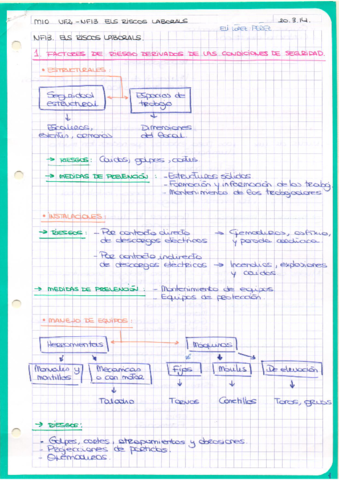 M10 UF2 - NF13 ELS RISCOS LABORALS 20.3.14.
NF13. ELS RISCOS LABORALS.
1. FACTORES DE RIESGO DERIVADOS DE LAS CONDICIONES DE SEGURIDAD.
• ESTRUCTURALES:
Seguridad estructural
Espacios de trabajo
Escaleras,
Dimensiones
del local
→ RIESGOS: Caídas, golpes, cortes
→ MEDIDAS DE PREVENCIÓN: - Estructuras sólidas
- Formación y información de los trabaj.
- Mantenimiento de los trabajadores
• INSTALACIONES:
→ RIESGOS: - Por contacto directo → Quemaduras, asfixia,
de descargas eléctricas y parada cardíaca.
- Por contacto indirecto
de descargas eléctricas → Incendios, explosiones
y caídas.
→ MEDIDAS DE PREVENCIÓN: - Mantenimiento de equipos
- Equipos de protección
• MANEJO DE EQUIPOS:
Herramientas
Máquinas
Manuales y martillos
Mecánicas o con motor
Fijas
Móviles
De elevación
Taladro
Tornos
Carretillas
Toros, grúas
→ RIESGOS:
- Golpes, cortes, atrapamientos y abrasiones.
- Proyecciones de partículas.
- Quemaduras.